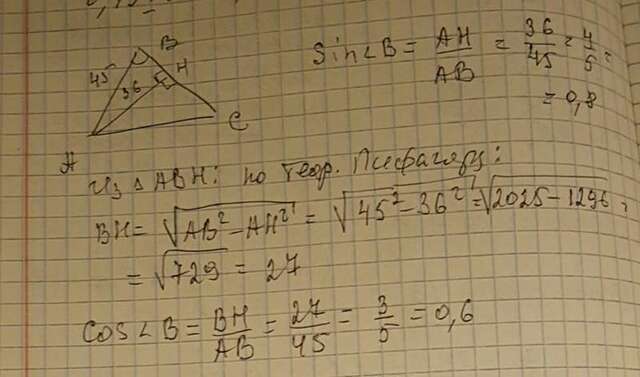 B
45
H
36
C
A
Sin∠B = AH/AB = 36/45 = 4/5 =
= 0,8
Из △ ABH: по теор. Пифагора:
BH = √(AB² − AH²) = √(45² − 36²) = √(2025 − 1296) =
= √729 = 27
Cos∠B = BH/AB = 27/45 = 3/5 = 0,6